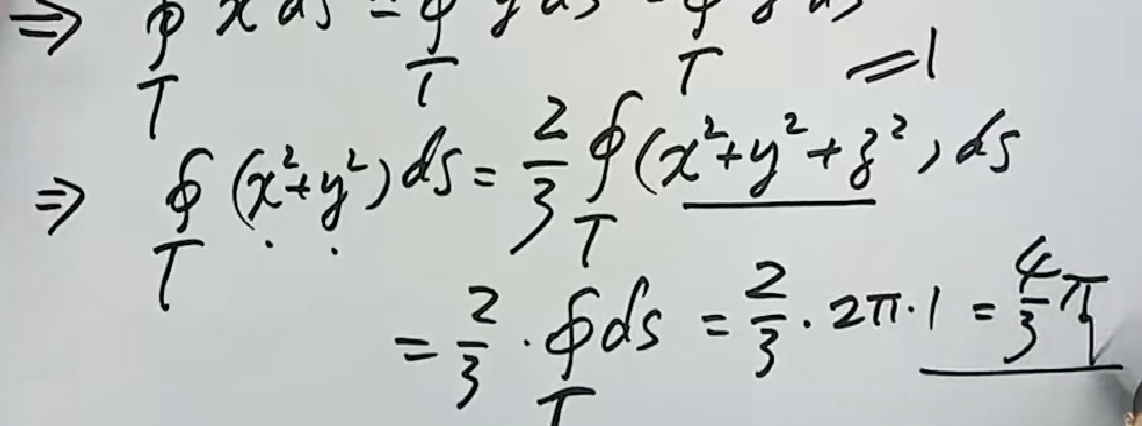 ⇒ ∮_T x ds = ∮_T y ds = ∮_T z ds
=1
⇒ ∮_T (x²+y²) ds = 2/3 ∮_T (x²+y²+z²) ds
= 2/3 · ∮_T ds = 2/3 · 2π·1 = 4/3 π